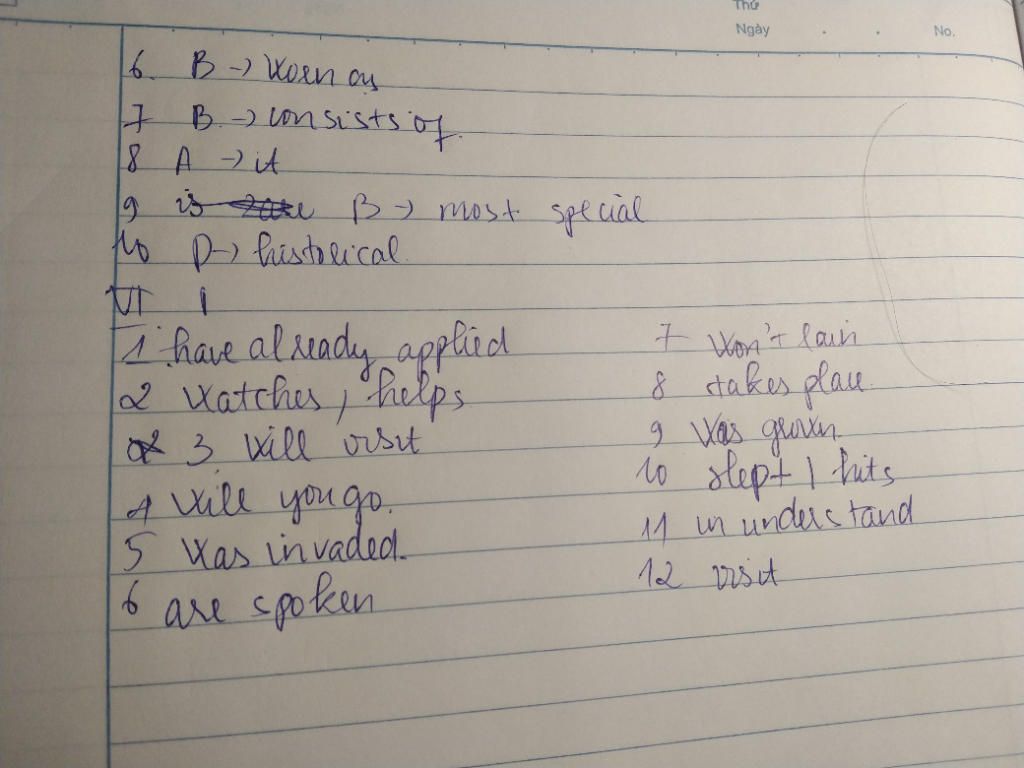 Thứ
Ngày . . No.
6. B → worn on
7 B. → consists of
8 A → it
9 B → most special
10 D → historical.
VI 1
1. have already applied
2 watches, helps
3 will visit
4 will you go.
5 was invaded.
6 are spoken
7 won't rain
8 takes place
9 was grown.
10 slept / hits
11 understand
12 visit